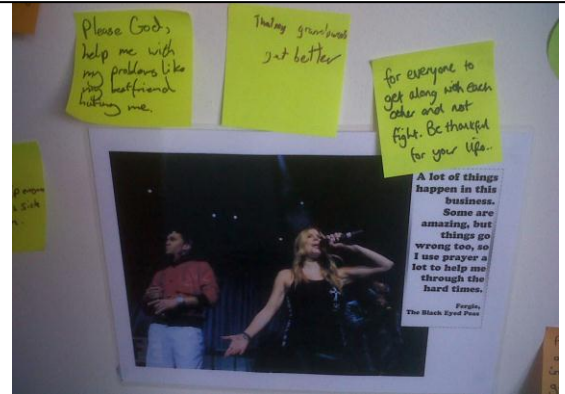 Please God,
help me with
my problems like
my bestfriend
hating me.
get better
for everyone to
get along with each
other and not
fight. Be thankful
for your life..
sick
A lot of things
happen in this
business.
Some are
amazing, but
things go
wrong too, so
I use prayer a
lot to help me
through the
hard times.
Fergie,
The Black Eyed Peas